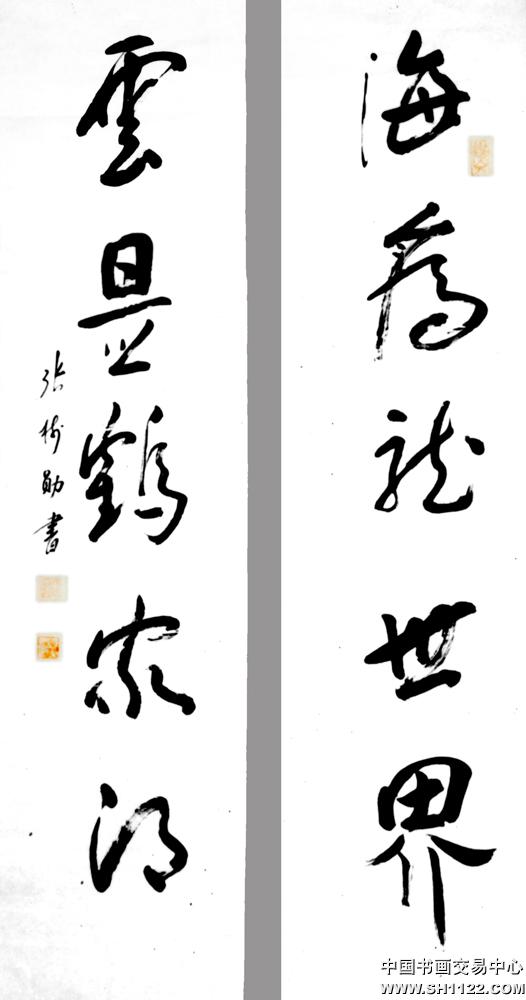 海為龍世界
雲是鶴家鄉
張樹勛書
中国书画交易中心
WWW.SH1122.COM